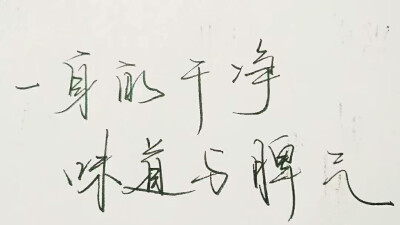 一身的干净
味道与脾气